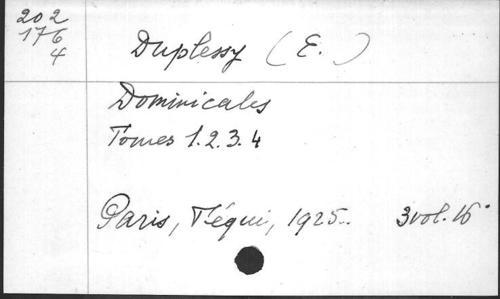 202
176
4
Duplessy (E.)
Dominicales
Tomes 1.2.3.4
Paris, Téqui, 1925. 3 vol. 16°